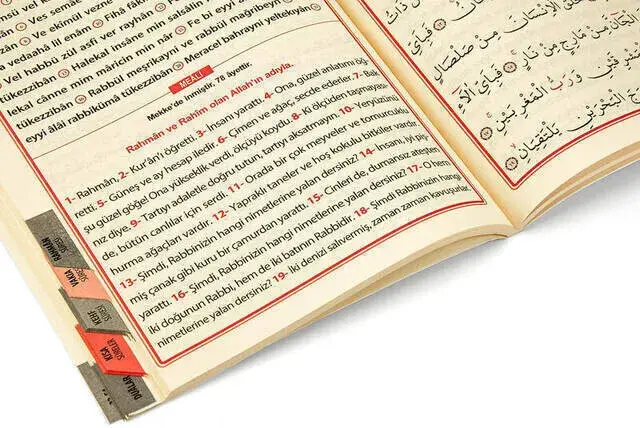 nü
Ve's semae
Vel ekinul veznе
vedaaha lil enâm
Vel habbü zül asfi ver rayhân
tükezzibân Halekal insâne min salsâlin
lekal cânne min mâricin min nâr Fe bi eyyi
tükezzibân Rabbül meşrikayni ve rabbül mağribeyn
eyyi âlâi rabbikümâ tükezzibân Meracel bahrayni yeltekıyân
MEALİ
Mekke'de inmiştir. 78 âyettir.
Rahmân ve Rahîm olan Allah'ın adıyla.
1- Rahmân, 2- Kur'ân'ı öğretti. 3- İnsanı yarattı. 4- Ona, güzel anlatımı öğ
retti. 5- Güneş ve ay hesap iledir. 6- Çimen ve ağaç, secde ederler. 7- Bak
şu güzel göğe! Ona yükseklik verdi, ölçüyü koydu. 8- Ki ölçüden taşmayası
nız diye. 9- Tartıyı adaletle doğru tutun, tartıyı aksatmayın. 10- Yeryüzünü
de, bütün canlılar için serdi. 11- Orada bir çok meyveler ve tomurcuklu
hurma ağaçları vardır. 12- Yapraklı taneler ve hoş kokulu bitkiler vardır.
13- Şimdi, Rabbinizin hangi nimetlerine yalan dersiniz? 14- İnsanı, iyi piş-
miş çanak gibi kuru bir çamurdan yarattı. 15- Cinleri de, dumansız ateşten
yarattı. 16- Şimdi, Rabbinizin hangi nimetlerine yalan dersiniz? 17- O hem
iki doğunun Rabbi, hem de iki batının Rabbidir. 18- Şimdi Rabbinizin hangi
nimetlerine yalan dersiniz? 19- İki denizi salıvermiş, zaman zaman kavuşurlar.
RAHMAN SURESİ
VAKIA SURESİ
KEHF SURESİ
KISA SURELER
DUALAR
الْاِنْسَانَ مِنْ صَلْصَالٍ
الْجَانَّ مِنْ مَارِجٍ مِنْ نَارٍ فَبِاَيِّ
وَرَبُّ الْمَغْرِبَيْنِ فَبِاَيِّ اٰلَٓاءِ
الْبَحْرَيْنِ يَلْتَقِيَانِ